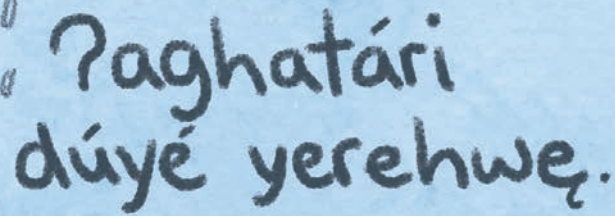 ʔaghatári
dúyé yerehwę.